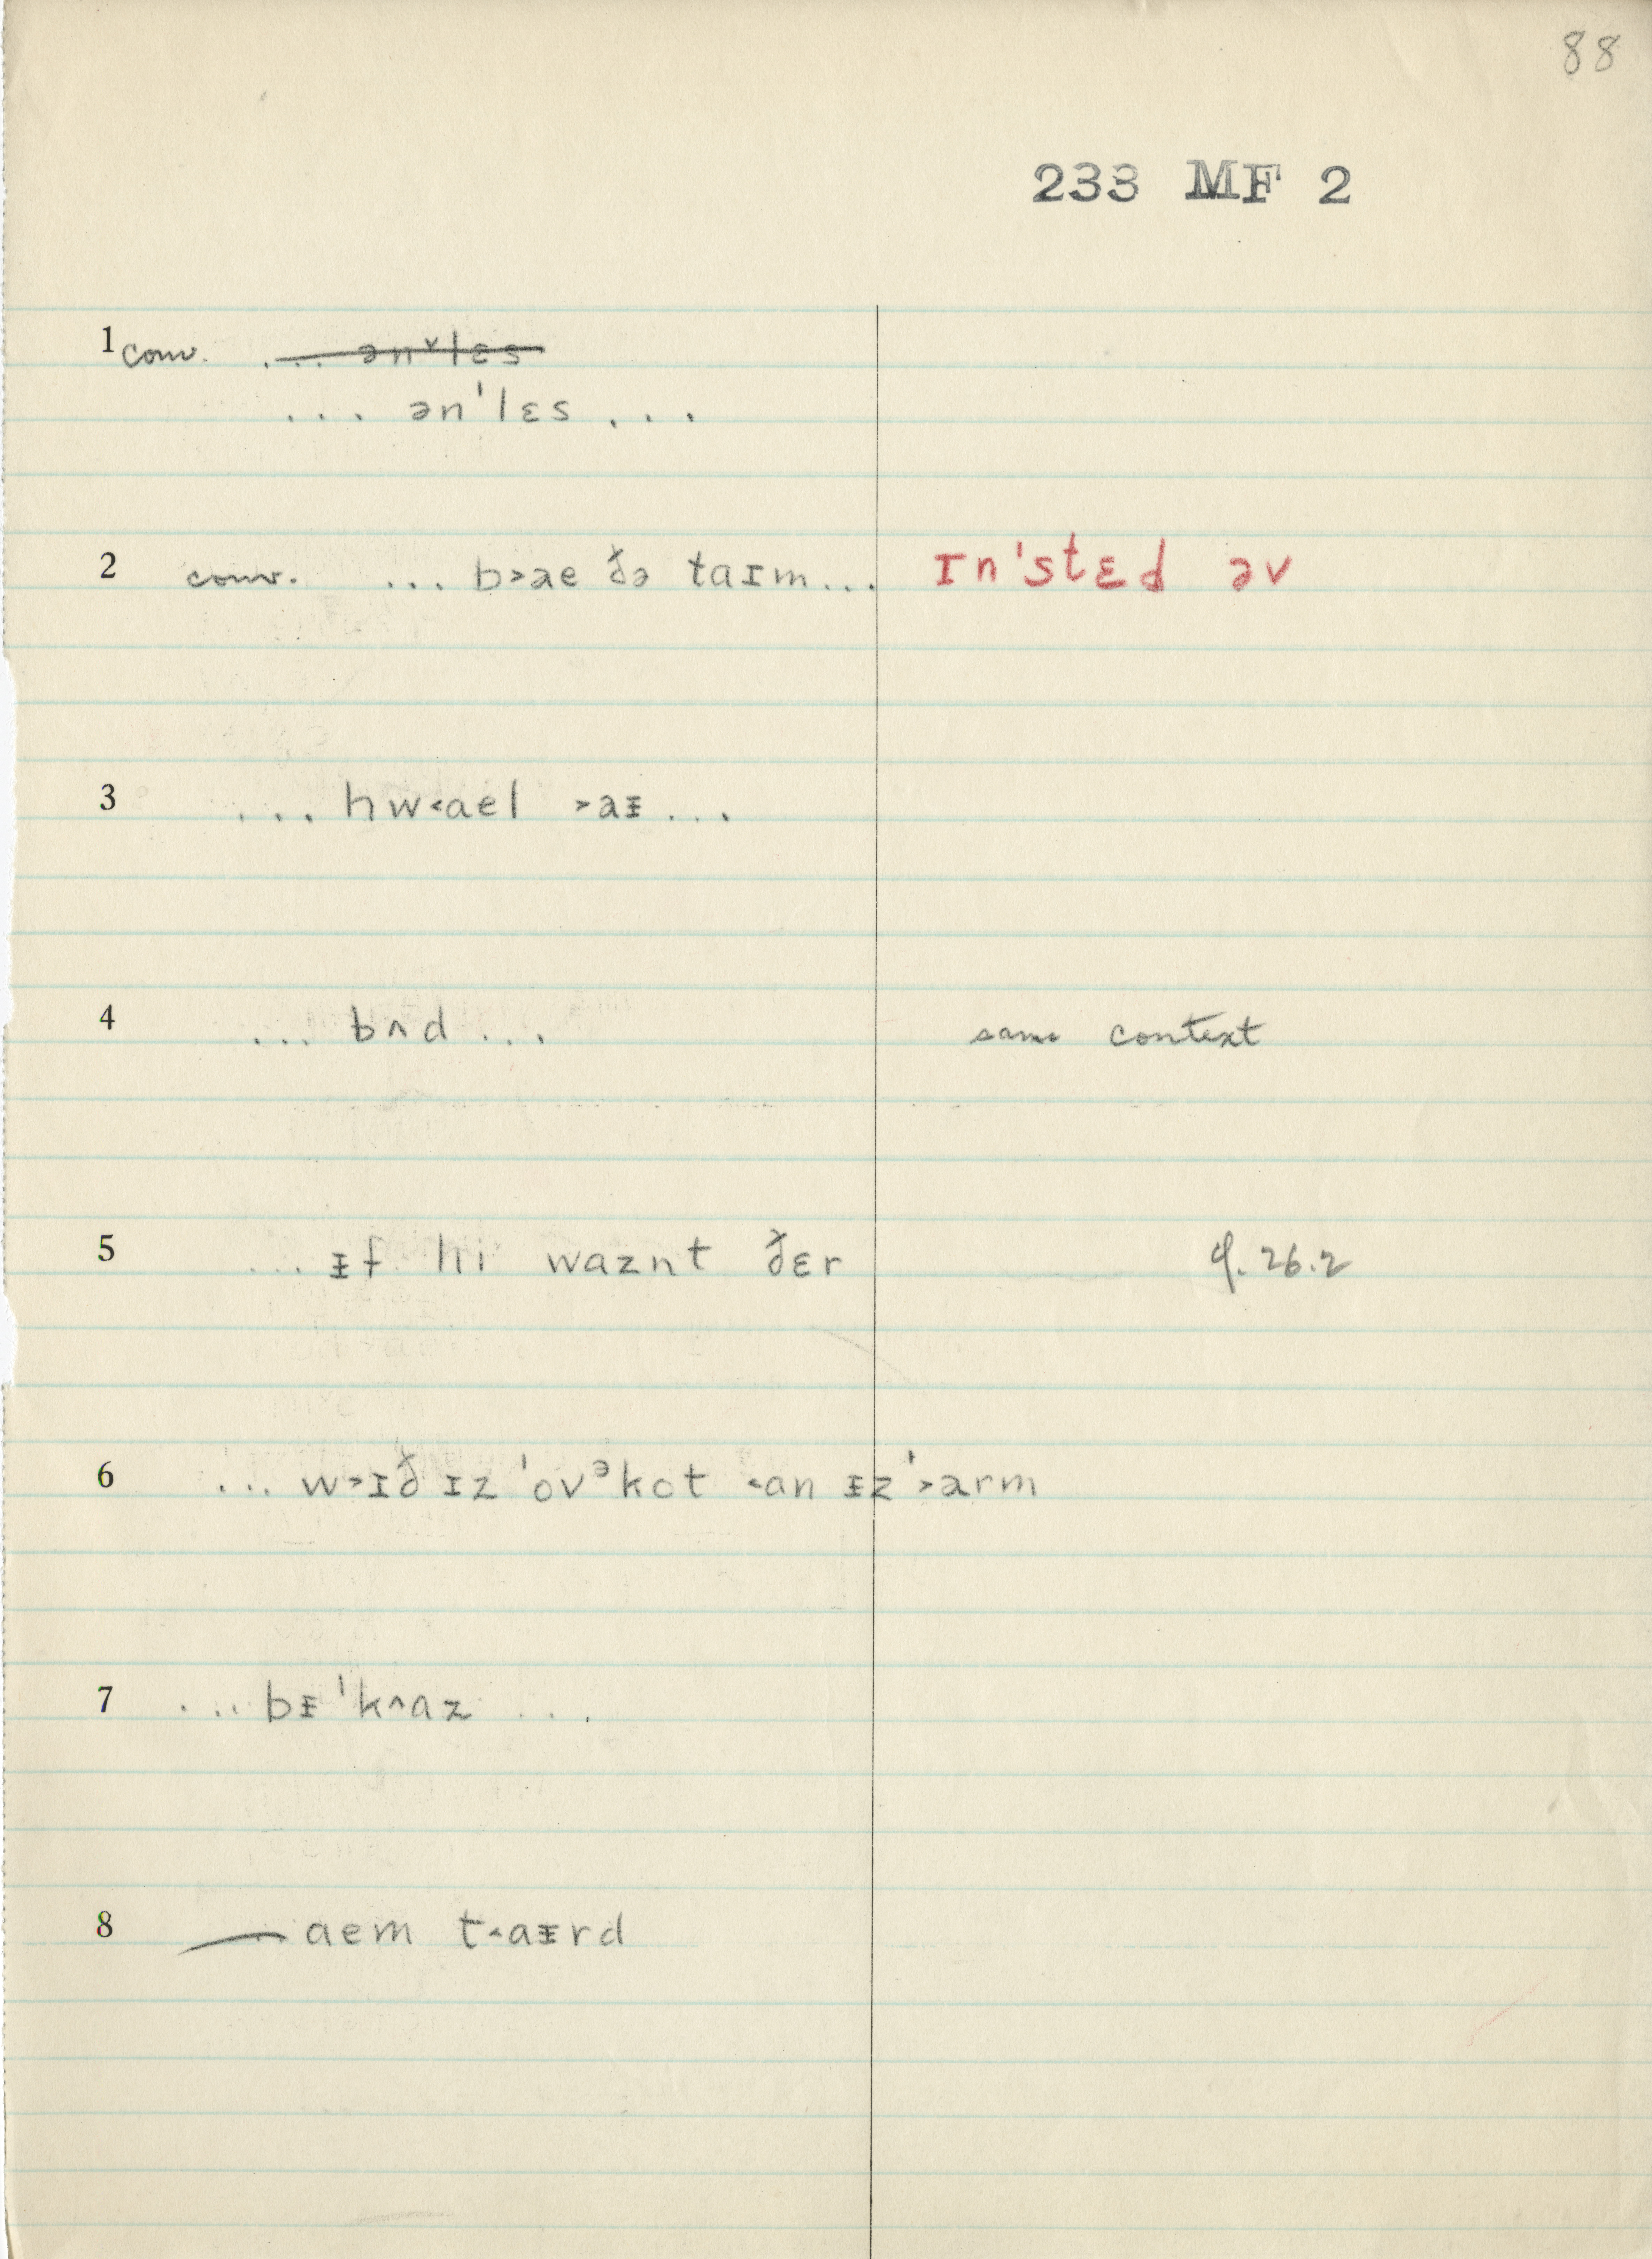 88
233 MF 2
1 conv. ... ənˇlɛs
... ən'lɛs ...
2 conv. ... b˃ae ðə taɪm... ɪn'stɛd əv
3 ... hw˂ael ˃aᵻ ...
4 ... bʌd ... same context
5 ... ᵻf hi waznt ðɛr 26.2
6 ... w˃ɪð ɪz 'ovᵊkot ˂an ᵻz '˃arm
7 ... bᵻ'k^az ...
8 — aem t˂aᵻrd